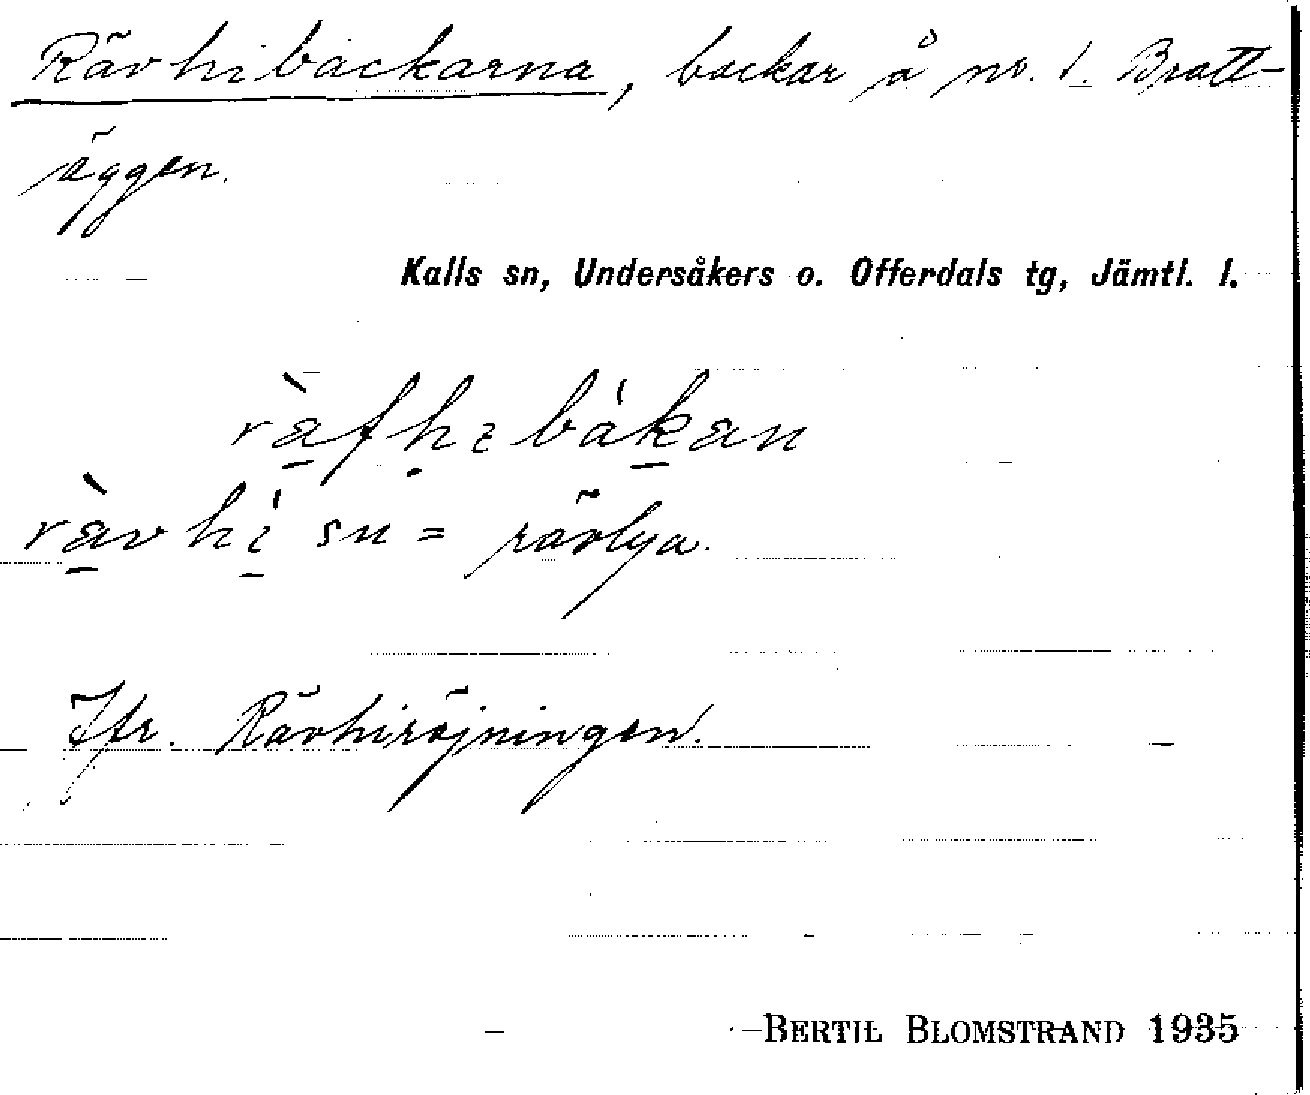 Rävhibackarna, backar å nr. 1. Bratt-
äggen.
Kalls sn, Undersåkers o. Offerdals tg, Jämtl. l.
ràfhɩbákan
ràvhí su = rävlya.
Jfr. Rävhiröjningen.
BERTIL BLOMSTRAND 1935